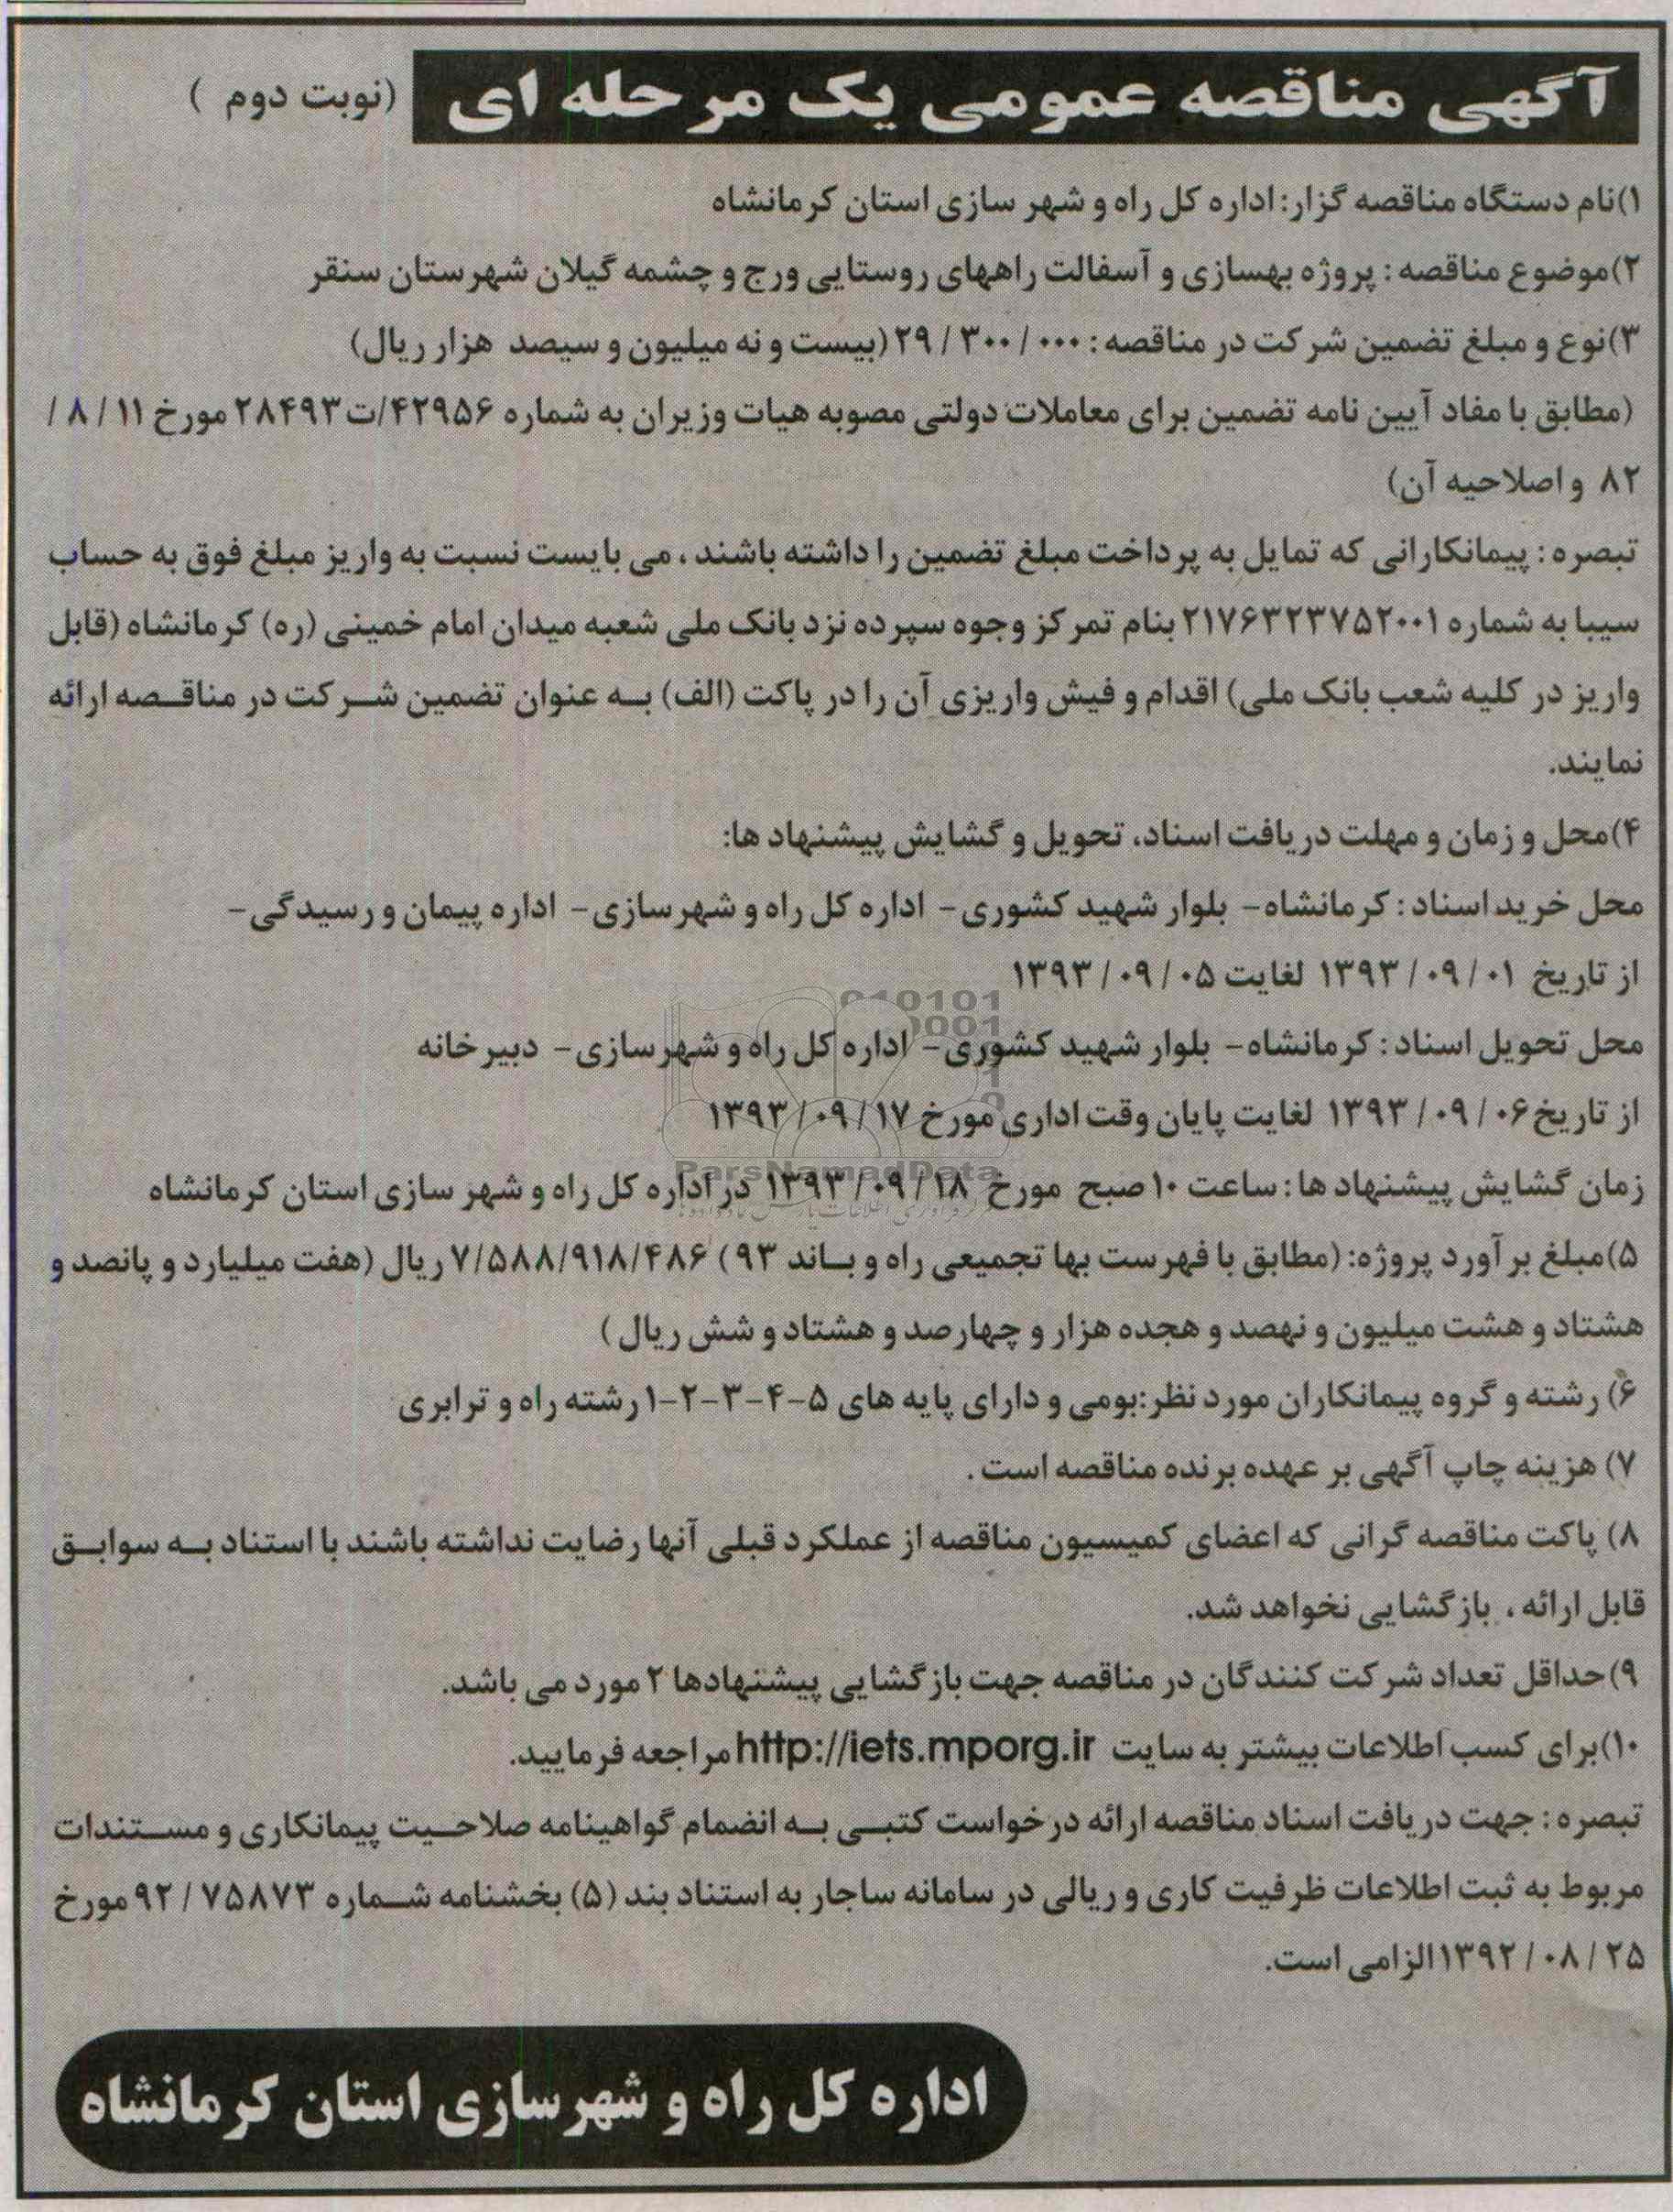 آگهی مناقصه عمومی یک مرحله ای (نوبت دوم )
۱)نام دستگاه مناقصه گزار: اداره کل راه و شهر سازی استان کرمانشاه
۲)موضوع مناقصه : پروژه بهسازی و آسفالت راههای روستایی ورج و چشمه گیلان شهرستان سنقر
۳)نوع و مبلغ تضمین شرکت در مناقصه : ۲۹/۳۰۰/۰۰۰ (بیست و نه میلیون و سیصد هزار ریال)
(مطابق با مفاد آیین نامه تضمین برای معاملات دولتی مصوبه هیات وزیران به شماره ۴۲۹۵۶/ت۲۸۴۹۳ مورخ ۱۱ / ۸ /
۸۲ و اصلاحیه آن)
تبصره : پیمانکارانی که تمایل به پرداخت مبلغ تضمین را داشته باشند ، می بایست نسبت به واریز مبلغ فوق به حساب
سیبا به شماره ۲۱۷۶۳۲۳۷۵۲۰۰۱ بنام تمرکز وجوه سپرده نزد بانک ملی شعبه میدان امام خمینی (ره) کرمانشاه (قابل
واریز در کلیه شعب بانک ملی) اقدام و فیش واریزی آن را در پاکت (الف) به عنوان تضمین شرکت در مناقصه ارائه
نمایند.
۴)محل و زمان و مهلت دریافت اسناد، تحویل و گشایش پیشنهاد ها:
محل خرید اسناد : کرمانشاه- بلوار شهید کشوری- اداره کل راه و شهرسازی- اداره پیمان و رسیدگی-
از تاریخ ۱۳۹۳/۰۹/۰۱ لغایت ۱۳۹۳/۰۹/۰۵
محل تحویل اسناد : کرمانشاه- بلوار شهید کشوری- اداره کل راه و شهرسازی- دبیرخانه
از تاریخ ۱۳۹۳/۰۹/۰۶ لغایت پایان وقت اداری مورخ ۱۳۹۳/۰۹/۱۷
زمان گشایش پیشنهاد ها : ساعت ۱۰ صبح مورخ ۱۳۹۳/۰۹/۱۸ در اداره کل راه و شهر سازی استان کرمانشاه
۵)مبلغ بر آورد پروژه: (مطابق با فهرست بها تجمیعی راه و باند ۹۳) ۷/۵۸۸/۹۱۸/۴۸۶ ریال (هفت میلیارد و پانصد و
هشتاد و هشت میلیون و نهصد و هجده هزار و چهارصد و هشتاد و شش ریال )
۶) رشته و گروه پیمانکاران مورد نظر:بومی و دارای پایه های ۵-۴-۳-۲-۱ رشته راه و ترابری
۷) هزینه چاپ آگهی بر عهده برنده مناقصه است .
۸) پاکت مناقصه گرانی که اعضای کمیسیون مناقصه از عملکرد قبلی آنها رضایت نداشته باشند با استناد به سوابق
قابل ارائه ، بازگشایی نخواهد شد.
۹)حداقل تعداد شرکت کنندگان در مناقصه جهت بازگشایی پیشنهادها ۲ مورد می باشد.
۱۰)برای کسب اطلاعات بیشتر به سایت http://iets.mporg.ir مراجعه فرمایید.
تبصره : جهت دریافت اسناد مناقصه ارائه درخواست کتبی به انضمام گواهینامه صلاحیت پیمانکاری و مستندات
مربوط به ثبت اطلاعات ظرفیت کاری و ریالی در سامانه ساجار به استناد بند (۵) بخشنامه شماره ۹۲/۷۵۸۷۳ مورخ
۱۳۹۲/۰۸/۲۵ الزامی است.
اداره کل راه و شهرسازی استان کرمانشاه
ParsNamadData